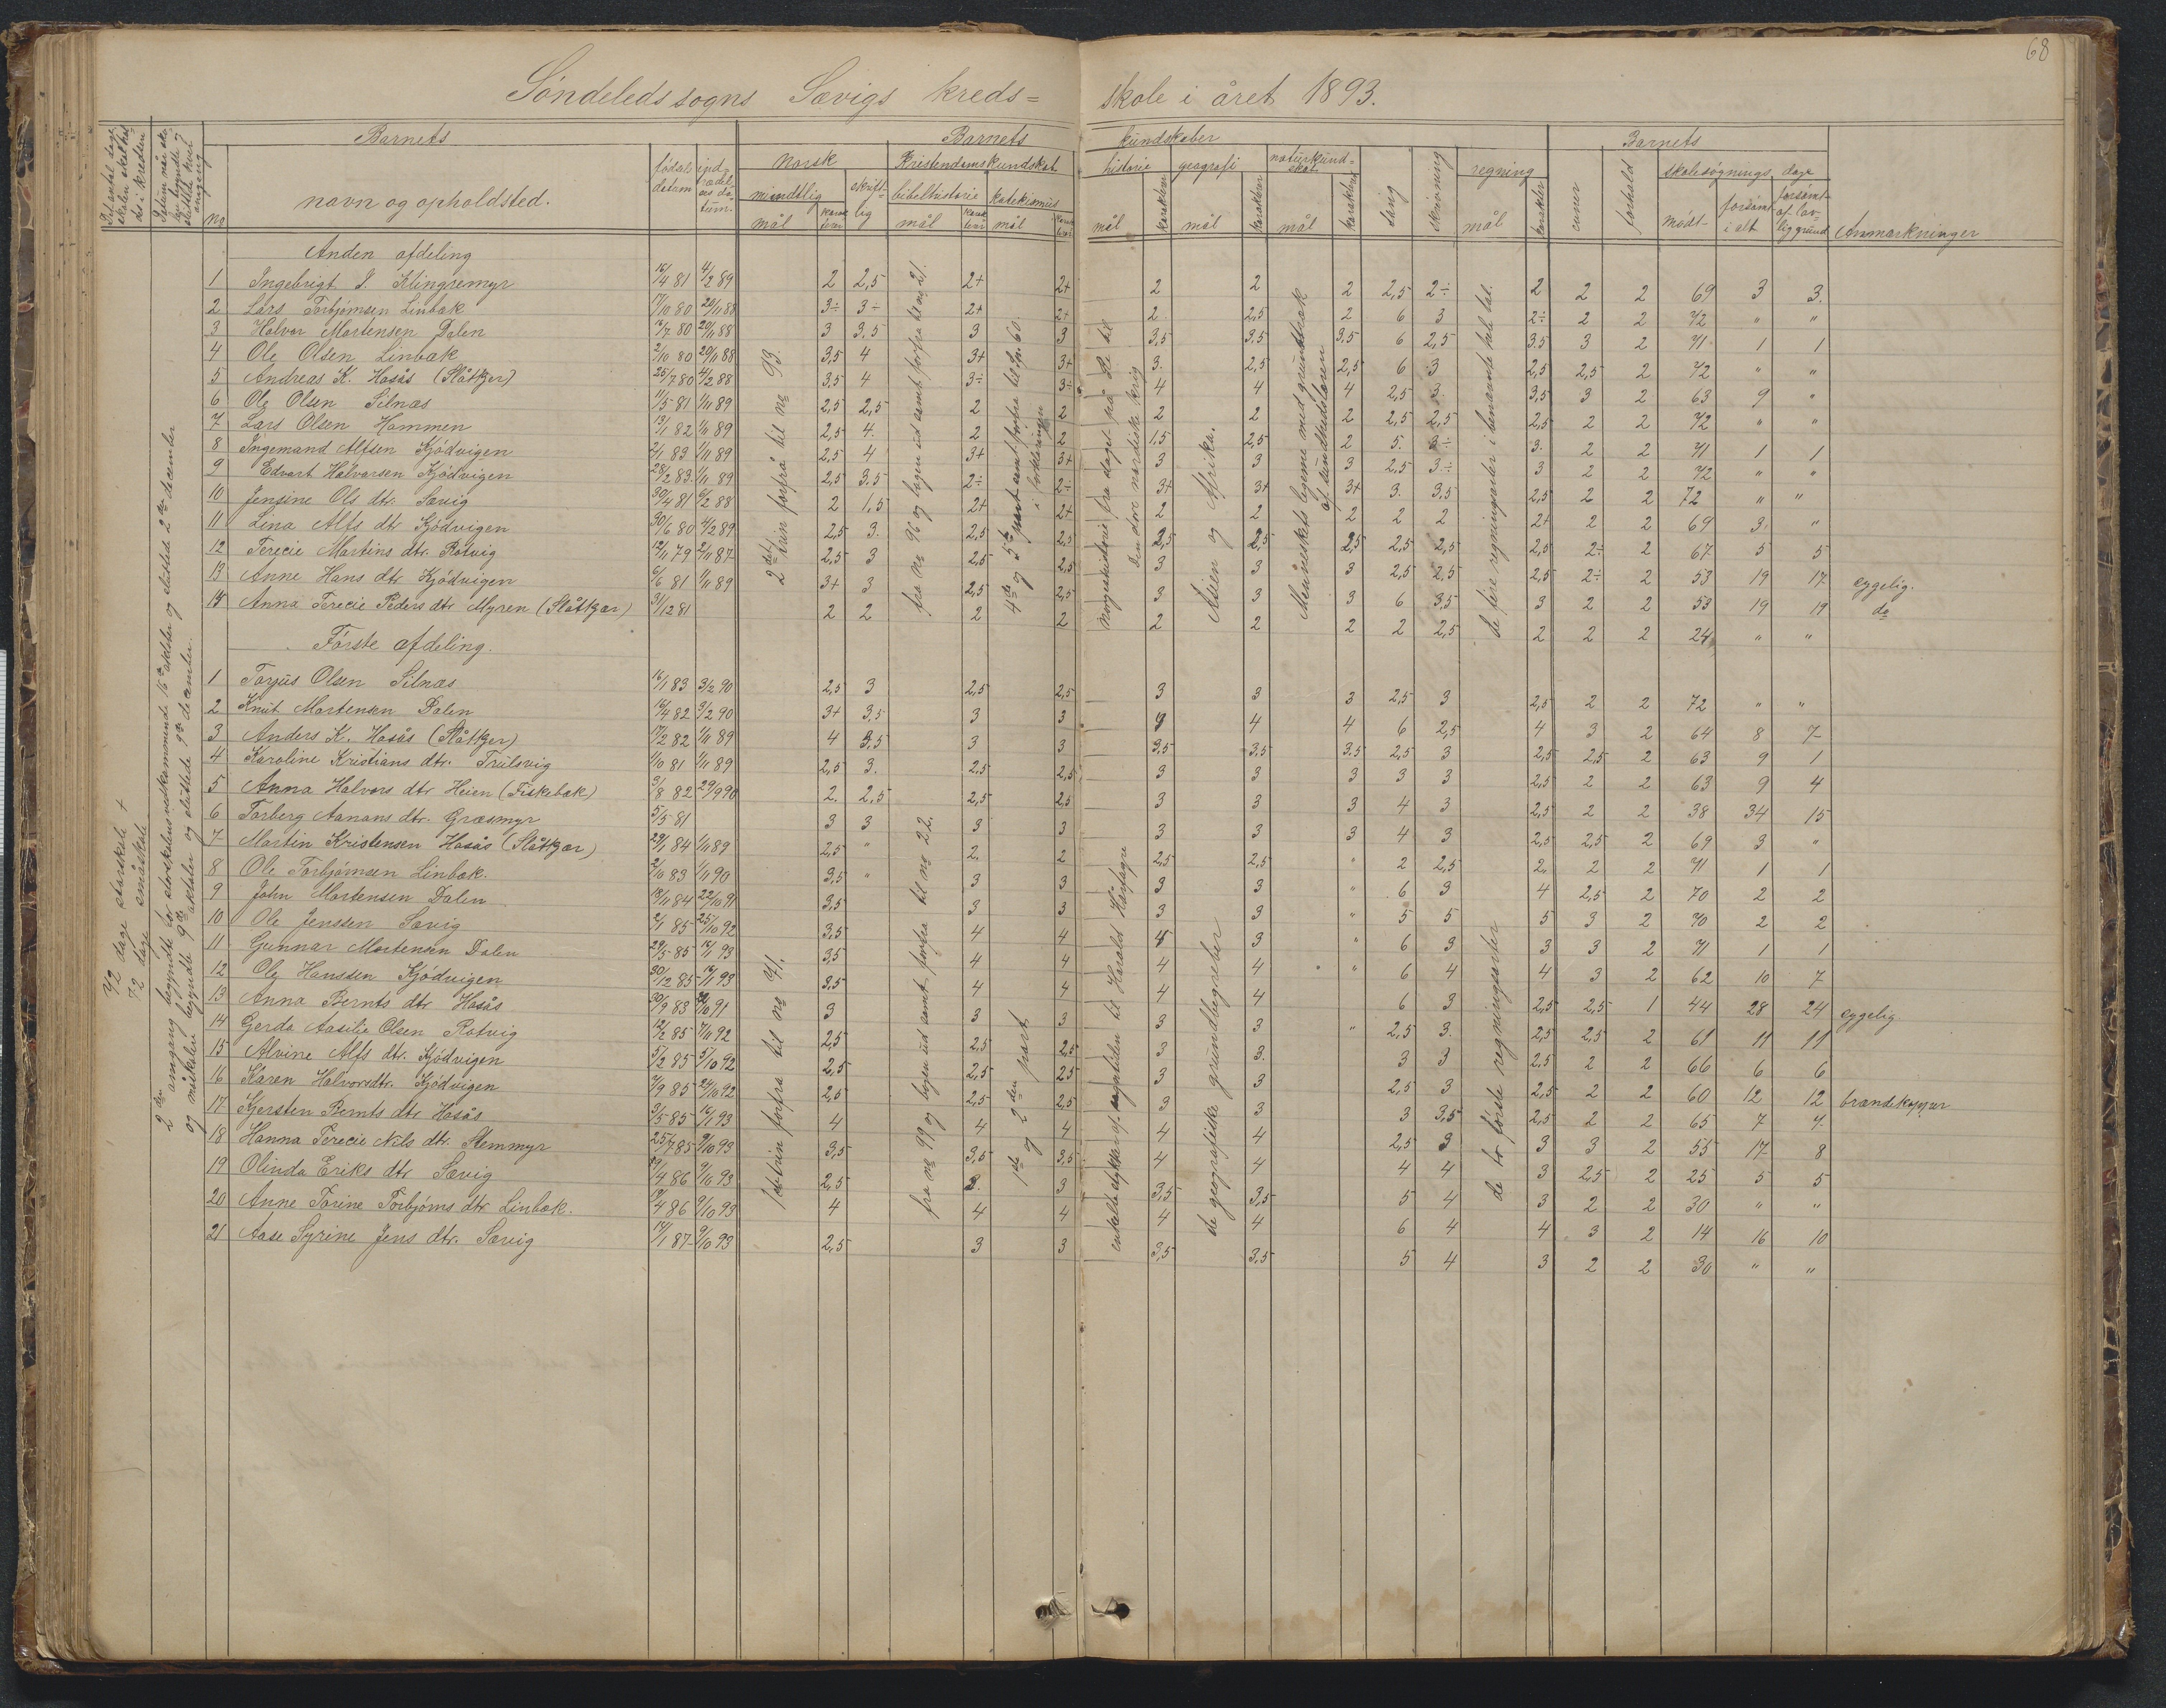 68
Söndeleds sogns Sævigs kreds=skole i året 1893.
Barnets
Barnets kundskaber
Barnets
no
navn og opholdsted.
födsels datum
indtrædelses datum
Norsk
mundtlig
mål
karakter
skriftlig
Kristendomskundskab
bibelhistorie
mål
karakter
katekismus
mål
karakter
historie
mål
karakter
geografi
mål
karakter
naturkundskab
mål
karakter
sang
skrivning
regning
mål
karakter
evner
forhold
skolesögnings dage
mödt
forsömt i alt
forsömt af lovlig grund
Anmærkninger
72 dage storskole +
72 dage småskole
Anden afdeling
1 Ingebrigt J. Klingremyr 16/4 81 4/2 89 2 2,5 2+ 2+ 2 2 2 2,5 2÷ 2 2 2 69 3 3.
2 Lars Torbjörnsen Linbæk 17/10 80 29/11 88 3÷ 3÷ 2+ 2+ 2 2,5 2 6 3 2÷ 2 2 72 " "
3 Halvor Mortensen Dalen 80 29/11 88 3 3,5 3 3 3,5 3,5 3,5 6 2,5 3,5 3 2 71 1 1
4 Ole Olsen Linbæk 2/10 80 29/11 88 3,5 4 3+ 3+ 3. 2,5 2,5 6 3 2,5 2,5 2 72 " "
5 Andreas K. Hasås (Slåtkjær) 25/7 80 4/2 88 3,5 4 3÷ 3÷ 4 4 4 2,5 3. 3,5 3 2 63 9 "
6 Ole Olsen Silnæs 11/5 81 1/11 89 2,5 2,5 2 2 2 2 2 2,5 2,5 2,5 2 2 72 " "
7 Lars Olsen Hammen 13/1 82 1/11 89 2,5 4. 2 2 1,5 2,5 2 5. 3÷ 3. 2 2 71 1 1
8 Ingemand Alfsen Kjödvigen 2/1 83 1/11 89 2,5 4 3+ 3+ 3 3 3 2,5 3÷ 3 2 2 72 " "
9 Edvart Halvorsen Kjödvigen 28/2 83 1/11 89 2,5 3,5 2÷ 2÷ 3+ 3+ 3+ 3. 3,5 2,5 2 2 72 " "
10 Jensine Ols dtr. Sævig 30/4 81 6/2 88 2 1,5 2+ 2+ 2 2 2 2 2 2+ 2 2 69 3. "
11 Lina Alfs dtr Kjödvigen 30/6 80 4/2 89 2,5 3. 2,5 2,5 2,5 2,5 2,5 2,5 2,5 2,5 2÷ 2 67 5 5
12 Terecie Martins dtr. Rotvig 12/11 79 2/11 87 2,5 3 2,5 2,5 3 3 3 2,5 2,5 2,5 2÷ 2 53 19 17 sygelig.
13 Anne Hans dtr Kjödvigen 6/6 81 1/11 89 3+ 3 2,5 2,5 3 3 3 6 3,5 3 2 2 53 19 19 do
14 Anna Terecie Peders dtr Myren (Slåtkjær) 31/12 81 2 2 2 2 2 2 2 2 2,5 2 2 2 24 " "
2det trin forfra til no 93.
fra no 96 og bogen ud samt forfra til no 21.
4de og 5te part samt forfra til sp. 60. i forklaringen
Norgeshistorie fra daget på Re til
Den store nordiske krig
Asien og Afrika.
Menneskets legeme med grundtræk
af sundhedslæren
de fire regningsarter i benævnte hele tal.
Förste afdeling.
1 Torjus Olsen Silnæs 16/1 83 3/2 90 2,5 3 2,5 2,5 3 3 3 2,5 3 2,5 2 2 72 " "
2 Knut Mortensen Dalen 16/4 82 3/2 90 3+ 3,5 3 3 4 4 4 6 2,5 4 3 2 64 8 7
3 Anders K. Hasås (Slåtkjer) 17/2 82 1/11 89 4 3,5 3 3 3,5 3,5 3,5 2,5 3 2,5 2,5 2 63 9 1
4 Karoline Kristians dtr. Trulsvig 1/10 81 1/11 89 2,5 3. 2,5 2,5 3 3 3 3 3 2,5 2 2 63 9 4
5 Anna Halvors dtr Heien (Fiskebæk) 3/8 82 29/9 90 2. 2,5 2,5 2,5 3 3 3 4 3 2,5 2 2 38 34 15
6 Torberg Aanons dtr. Græsmyr 5/5 81 3 3 3 3 3 3 3 4 3 2,5 2,5 2 69 3 "
7 Martin Kristensen Hasås (Slåtkjær) 29/1 84 1/11 89 2,5 " 2. 2 2,5 2,5 " 2 2,5 2. 2 2 71 1 1
8 Ole Torbjörnsen Linbæk. 2/10 83 1/11 90 3,5 " 3 3 3 3 " 6 3 4 2,5 2 70 2 2
9 John Mortensen Dalen 18/11 84 22/10 91 3,5 3 3 3 3 " 5 5 5 3 2 70 2 2
10 Ole Jenssen Sævig 2/1 85 25/10 92 3,5 4 4 4 3 " 6 3 3 3 2 71 1 1
11 Gunnar Mortensen Dalen 29/5 85 16/1 93 3,5 4 4 4 4 " 6 4 4 3 2 62 10 7
12 Ole Hanssen Kjödvigen 30/12 85 16/1 93 3,5 4 4 4 4 6 3 2,5 2,5 1 44 28 24 sygelig
13 Anna Bernts dtr Hasås 30/9 83 10 91 3 3 3 3 3 " 2,5 3. 2,5 2,5 2 61 11 11
14 Gerda Aasilie Olsen Rotvig 12/2 85 7/11 92 2,5 2,5 2,5 3 3. 3 3 2,5 2 2 66 6 6
15 Alvine Alfs dtr. Kjödvigen 5/2 85 5/10 92 2,5 2,5 2,5 3 3 2,5 3 2,5 2 2 60 12 12 brandekopper
16 Karen Halvorsdtr. Kjödvigen 7/9 85 24/10 92 2,5 2,5 2,5 3 3 3 3,5 2,5 2 2 65 7 7.
17 Kjersten Bernts dtr Hasås 3/5 85 16/1 93 4 4 4 4 4 2,5 3 3 3 2 55 17 8
18 Hanna Terecie Nils dtr. Stemmyr 25/7 85 9/10 93 3,5 3,5 3,5 4 4 4 4 3 2,5 2 25 5 5
19 Olinda Eriks dtr Sævig 4 86 9/10 93 2,5 3. 3 3,5 3,5 5 4 3 2 2 30 " "
20 Anne Torine Torbjörns dtr Linbæk. 19/4 86 9/10 93 4 4 4 4 4 6 4 4 3 2 14 16 10
21 Aase Syrine Jens dtr. Sævig 14/1 87 9/10 93 2,5 3 3 3,5 3,5 5 4 3 2 2 30 " "
1ste trin forfra til no 91.
fra no 99 og bogen ud samt forfra til no 22.
1ste og 2den part
enkelte stykker af sagntiden til Harald Hårfagre
de geografiske grundbegreber
de to förste regningsarter